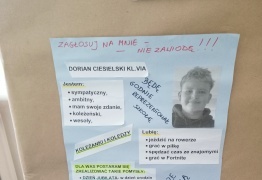 ZAGŁOSUJ NA MNIE - NIE ZAWIODĘ !!!
DORIAN CIESIELSKI KL.VIA
Jestem:
• sympatyczny,
• ambitny,
• mam swoje zdanie,
• koleżeński,
• wesoły,
BĘDĘ
GODNIE
REPREZENTOWAŁ
SZKOŁĘ
Lubię:
• jeździć na rowerze
• grać w piłkę
• spędzać czas ze znajomymi
• grać w Fortnite
KOLEŻANKI I KOLEDZY
DLA WAS POSTARAM SIĘ
ZREALIZOWAĆ TAKIE POMYSŁY: